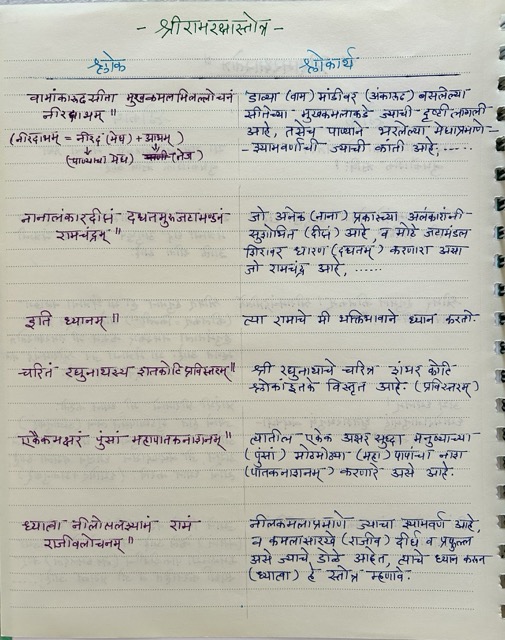 - श्रीरामरक्षास्तोत्र -
श्लोक
श्लोकार्थ
वामांकारूढसीता मुखकमलमिलल्लोचनं
नीरदाभम् ॥
(नीरदाभम् = नीरद (मेघ) + आभम्)
(पाण्याचा मेघ) (तेज)
डाव्या (वाम) मांडीवर (अंकारूढ) बसलेल्या
सीतेच्या मुखकमलाकडे ज्याची दृष्टी लागली
आहे, तसेच पाण्याने भरलेल्या मेघाप्रमाणे-
- श्यामवर्णाची ज्याची कांती आहे;......
नानालंकारदीप्तं दधतमुरुजटामण्डनं
रामचंद्रम् ॥
जो अनेक (नाना) प्रकारच्या अलंकारांनी
सुशोभित (दीप्तं) आहे, व मोठे जटामंडल
शिरावर धारण (दधतम्) करणारा असा
जो रामचंद्र आहे, ......
इति ध्यानम् ॥
त्या रामाचे मी भक्तिभावाने ध्यान करतो.
चरितं रघुनाथस्य शतकोटिप्रविस्तरम् ॥
श्री रघुनाथाचे चरित्र शंभर कोटि
श्लोकांइतके विस्तृत आहे. (प्रविस्तरम्)
एकैकमक्षरं पुंसां महापातकनाशनम् ॥
त्यातील एकेक अक्षर सुद्धा मनुष्याच्या
(पुंसां) मोठमोठ्या (महा) पापांचा नाश
(पातकनाशनम्) करणारे असे आहे.
ध्यात्वा नीलोत्पलश्यामं रामं
राजीवलोचनम् ॥
नीलकमलाप्रमाणे ज्याचा श्यामवर्ण आहे,
व कमलासारखे (राजीव) दीर्घ व प्रफुल्ल
असे ज्याचे डोळे आहेत, त्याचे ध्यान करून
(ध्यात्वा) हे स्तोत्र म्हणावे.